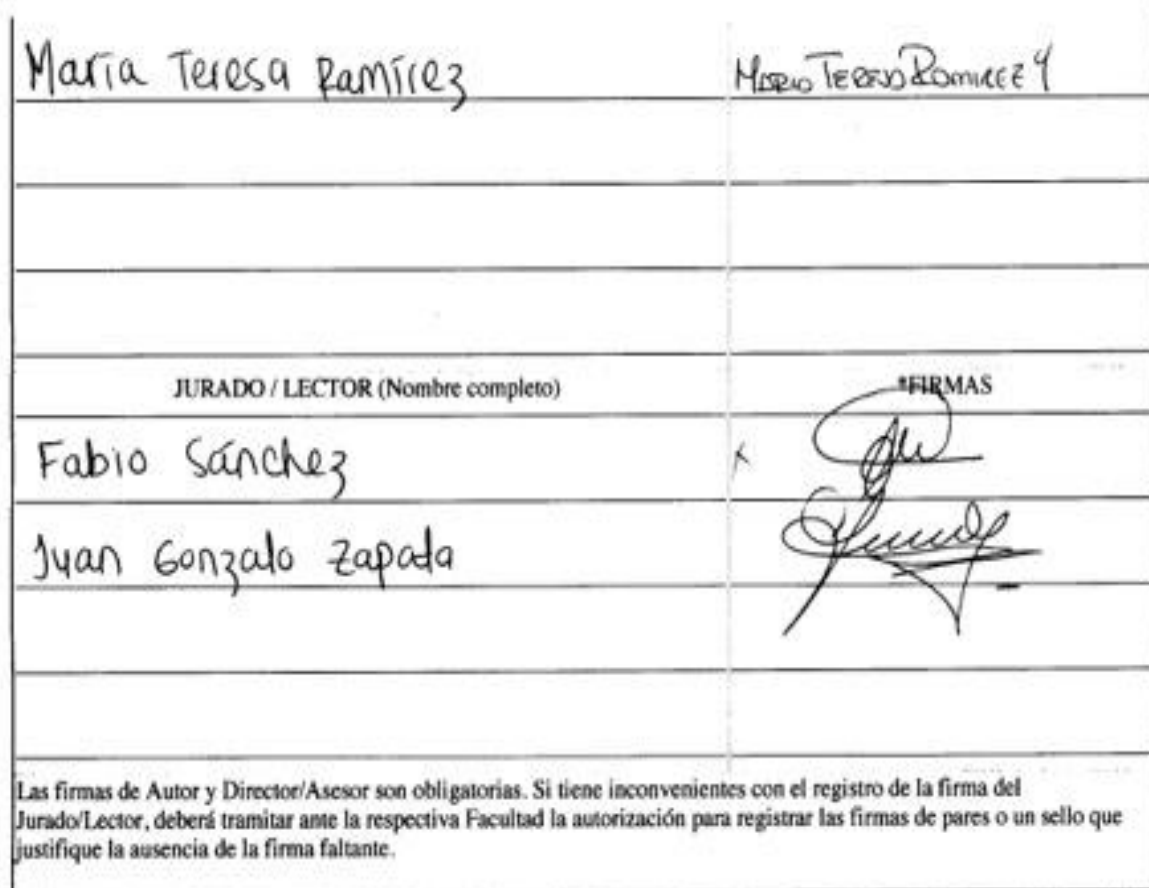 María Teresa Ramírez María Teresa Ramirez
JURADO / LECTOR (Nombre completo) *FIRMAS
Fabio Sánchez x
Juan Gonzalo Zapata
Las firmas de Autor y Director/Asesor son obligatorias. Si tiene inconvenientes con el registro de la firma del
Jurado/Lector, deberá tramitar ante la respectiva Facultad la autorización para registrar las firmas de pares o un sello que
justifique la ausencia de la firma faltante.